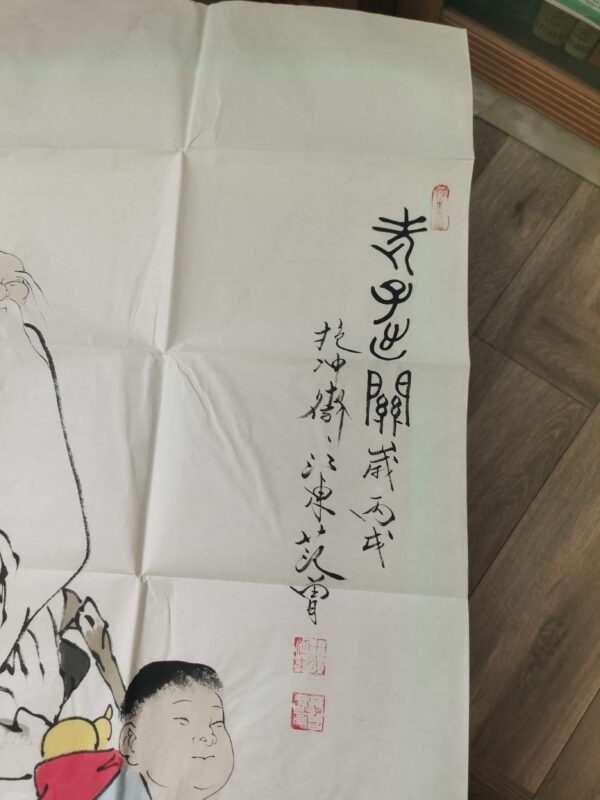 老子出關歲丙戌
抱冲齋丶江東范曾